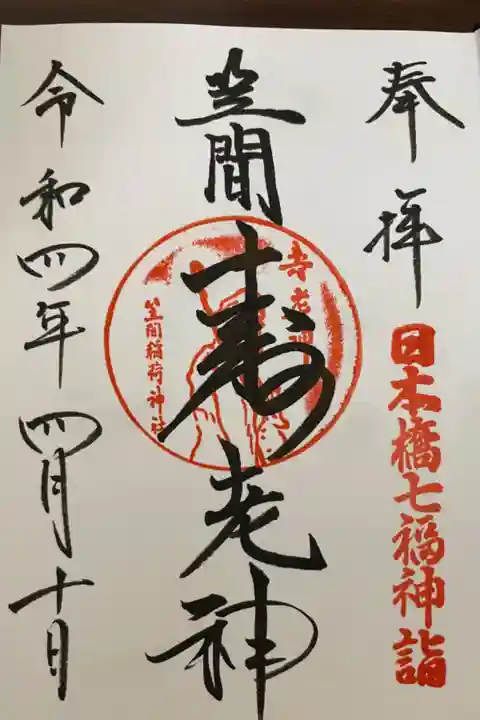 奉拝
日本橋七福神詣
笠間寿老神
寿老神
笠間稲荷神社
令和四年四月十日